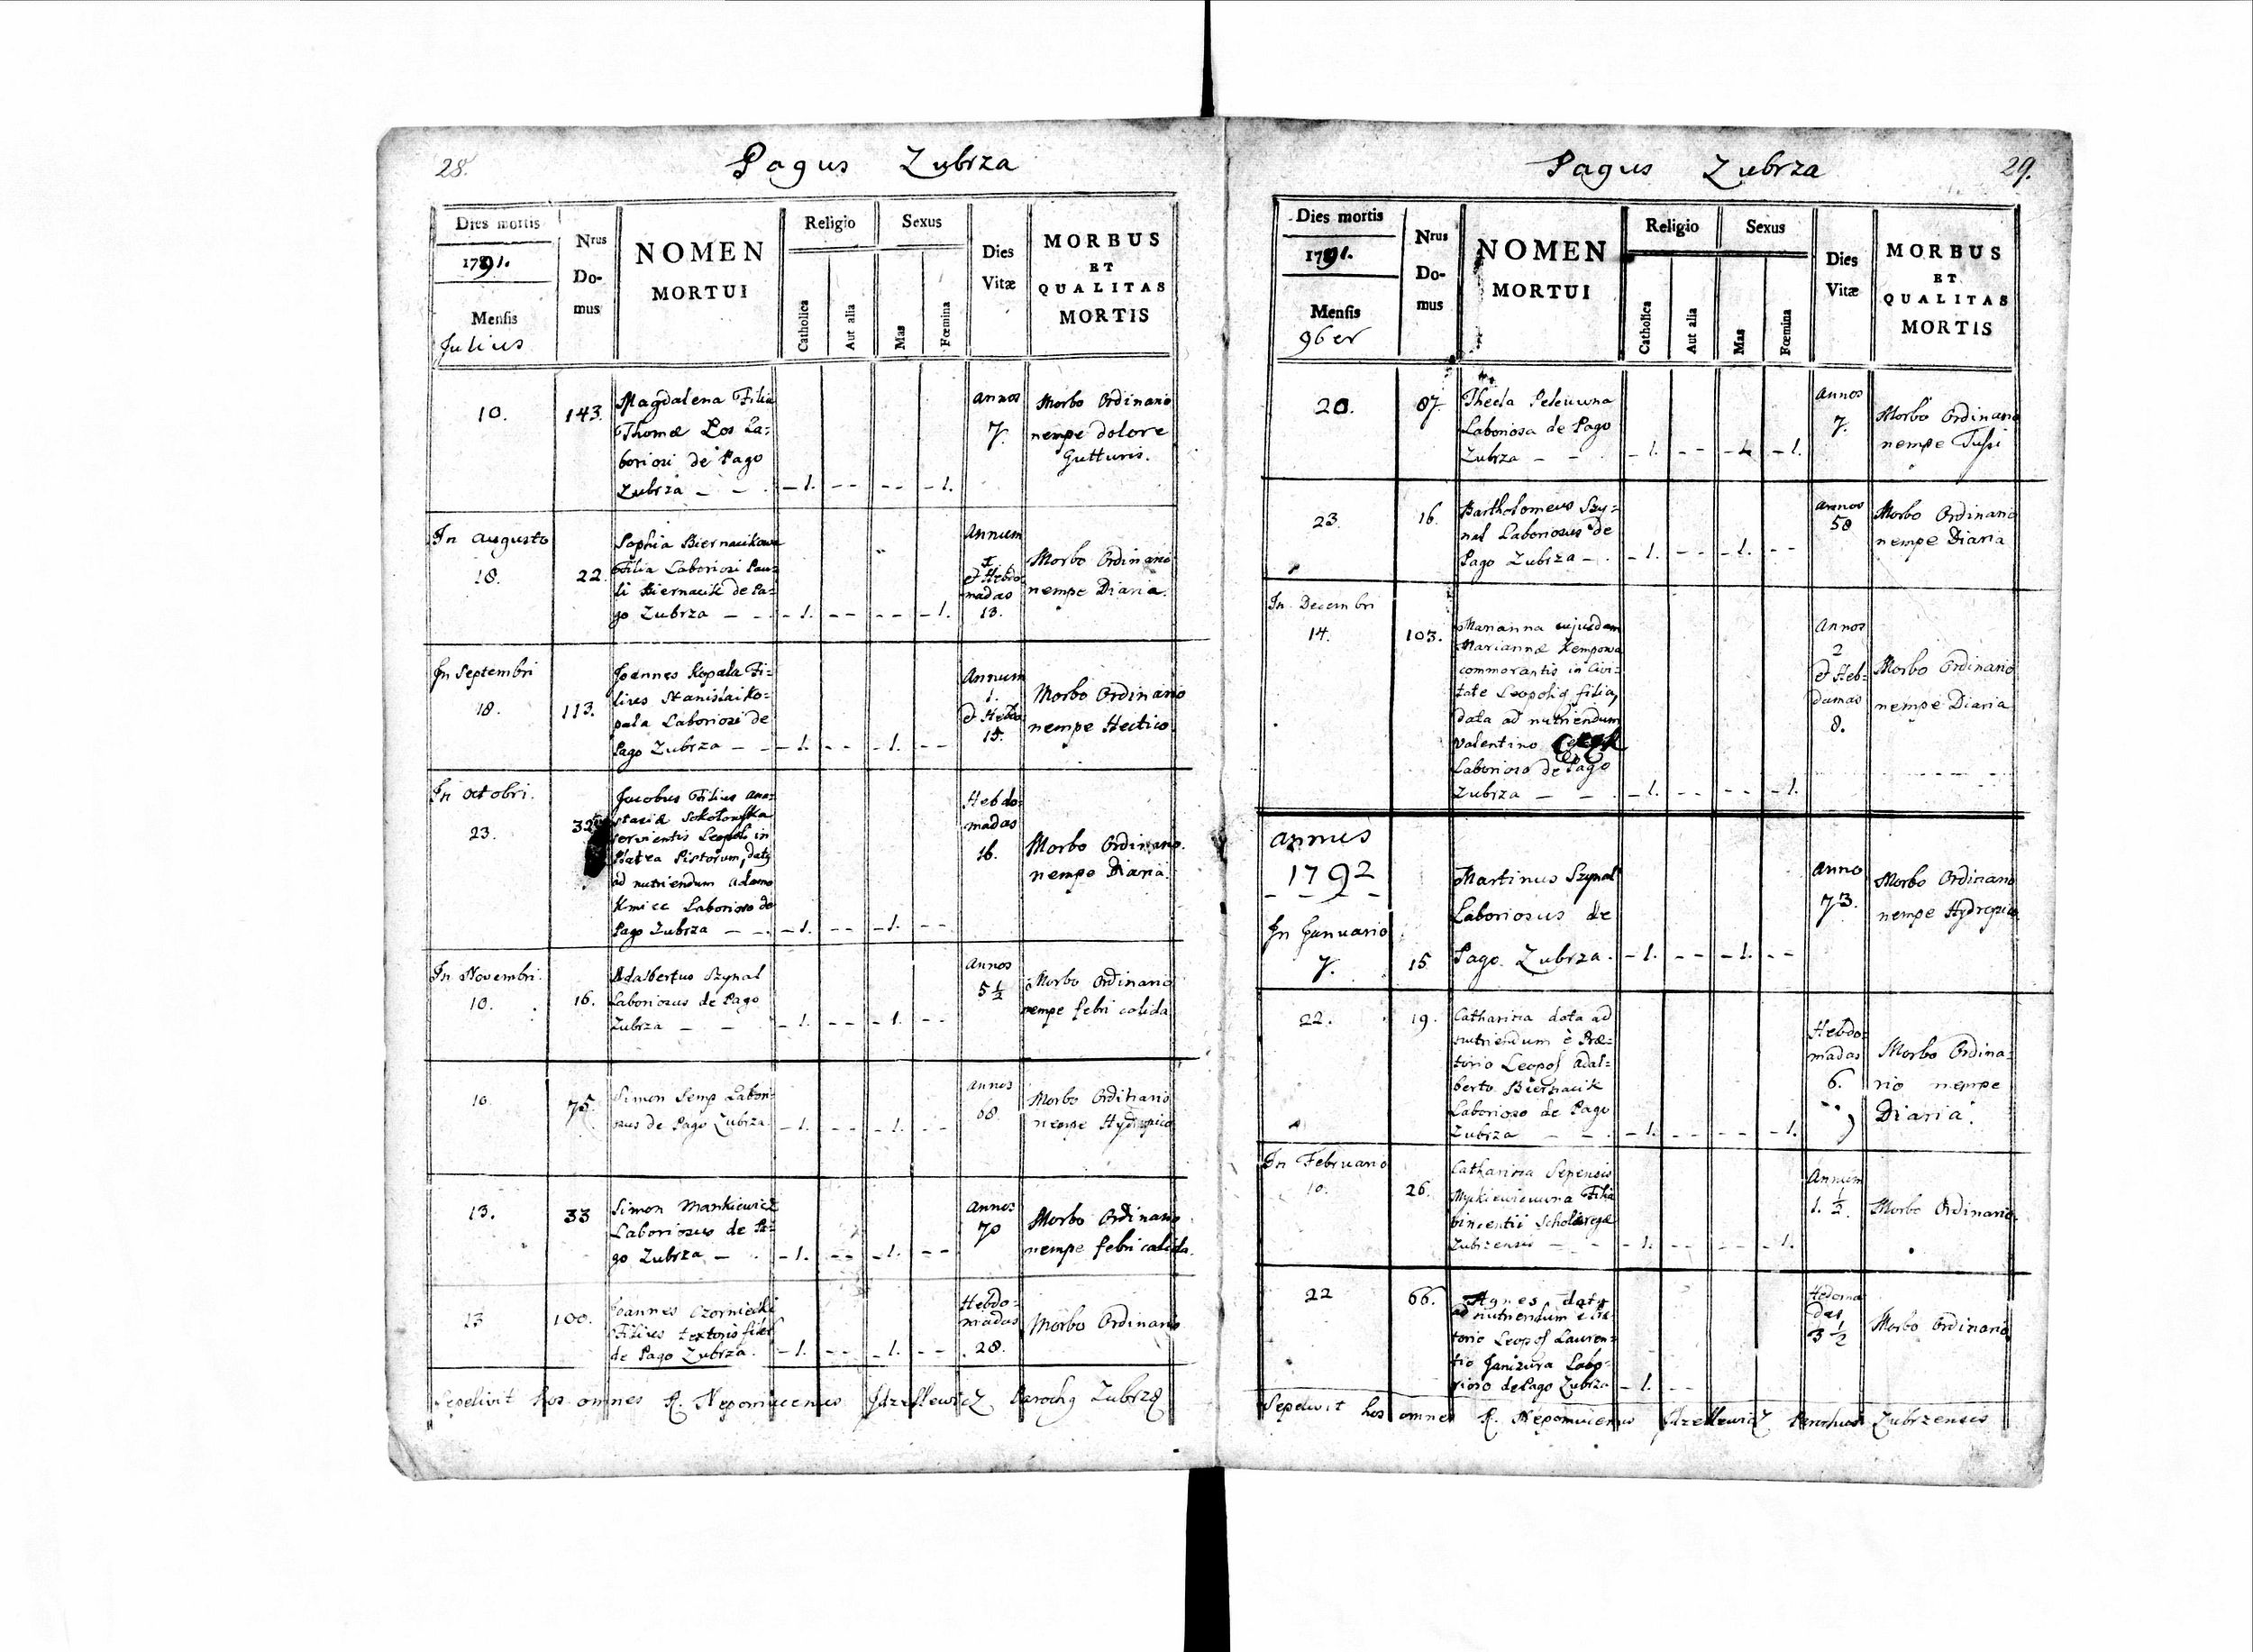 28.
Pagus Zubrza
Dies mortis
1791.
Mensis
Julius
Nrus
Do-
mus
NOMEN
MORTUI
Religio
Catholica
Aut alia
Sexus
Mas
Fœmina
Dies
Vitæ
MORBUS
ET
QUALITAS
MORTIS
10.
143.
Magdalena Filia
Thomæ Los La:
boriosi de Pago
Zubrza – – . – 1. – – – – – 1.
Annos
7.
Morbo Ordinario
nempe dolore
Gutturis.
In Augusto
18.
22.
Sophia Biernacikowa
Filia Laboriosi Pau:
li Biernacik de Pa:
go Zubrza – – . – 1. – – – – – 1.
Annum
1.
et Hebdo
madas
13.
Morbo Ordinario
nempe Diaria.
In Septembri
18.
113.
Joannes Kopala Fi:
lius Stanislai Ko:
pala Laboriosi de
Pago Zubrza – – – 1. – – – 1. – –
Annum
1.
et Hebdo
15.
Morbo Ordinario
nempe Hectico.
In Octobri.
23.
32
Jacobus Filius Ana:
stasiæ Sokołowska
servientis Leopoli in
Platea Pistorum, datq
ad nutriendum Adamo
Kmiec Laborioso de
Pago Zubrza – – . – 1. – – – 1. – –
Hebdo:
madas
16.
Morbo Ordinario.
nempe Diaria.
In Novembri.
10.
16.
Adalbertus Szynal
Laboriosus de Pago
Zubrza – – – 1. – – – 1. – –
Annos
5 1/2
Morbo Ordinario
nempe febri calida
10.
75.
Simon Semp Labori:
osus de Pago Zubrza. – 1. – – – 1. – –
Annos
68.
Morbo Ordinario
nempe Hydropico
13.
33
Simon Mankiewicz
Laboriosus de Pa:
go Zubrza – . – 1. – – – 1. – –
Annos
70
Morbo Ordinario
nempe febri calida.
23
100.
Joannes Czorniecki
Filius textoris
de Pago Zubrza. – 1. – – – 1. – –
Hebdo:
madas
28.
Morbo Ordinario
Sepelivit hos omnes R. Nepomucenus Parochq Zubrzę
29.
Pagus Zubrza
Dies mortis
1791.
Mensis
96er
Nrus
Do-
mus
NOMEN
MORTUI
Religio
Catholica
Aut alia
Sexus
Mas
Fœmina
Dies
Vitæ
MORBUS
ET
QUALITAS
MORTIS
20.
87.
Thecla
Laboriosa de Pago
Zubrza – – – 1. – – – 1.
Annos
7.
Morbo Ordinario
nempe Tussi
23.
16.
Bartholomeus Szy:
nal Laboriosus de
Pago Zubrza – . – 1. – – – 1. – –
Annos
58
Morbo Ordinario
nempe Diaria
In Decembri
14.
103.
Marianna cujusdam
Mariannæ Kempowa
commorantis in Civi:
tate Leopolis filia,
data ad nutriendum
Valentino
Laborioso de Pago
Zubrza – – . – 1. – – – – – 1.
Annos
2
et Heb:
domas
8.
Morbo Ordinario
nempe Diaria
Annus
1792
In Januario
7.
15.
Martinus Szynal
Laboriosus de
Pago Zubrza. – 1. – – – 1. – –
Anno
73.
Morbo Ordinario
nempe Hydropico
22.
19.
Catharina data ad
nutriendum è Præ:
torio Leopol Adal:
berto Biernacik
Laborioso de Pago
Zubrza – – . – 1. – – – – – 1.
Hebdo:
madas
6.
Morbo Ordina:
rio nempe
Diaria.
In Februario
10.
26.
Catharina
Filia
Vincentii
Zubrzensis – – – 1. – – – – – 1.
Annum
1. 1/2.
Morbo Ordinario.
22
66.
Agnes data
ad nutriendum è Præ:
torio Leopol Lauren:
tio Janizura Labo:
rioso de Pago Zubrza – 1. – –
Hedoma
das
3 1/2
Morbo Ordinario
Sepelivit hos omnes R. Nepomucenus Parochus Zubrzensis